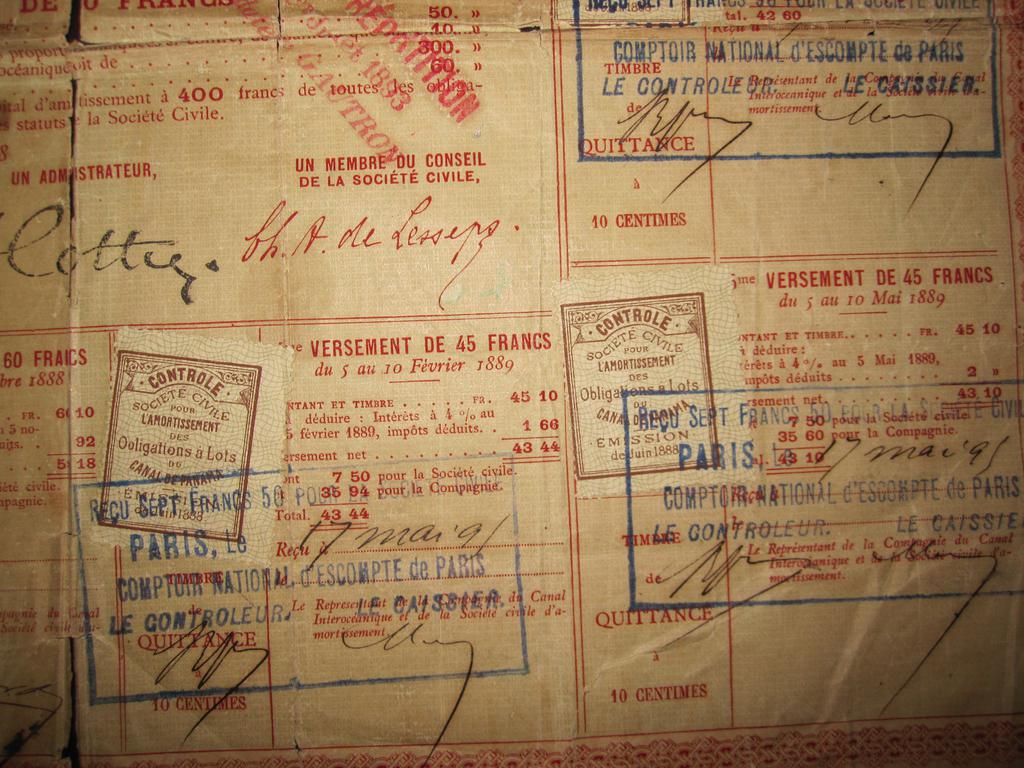 DE 0 FRANCS
50. »
10. »
300. »
60. »
RÉPARTITION
1893
GAUTRON
proport
océanique oit de
ital d'am tissement à 400 francs de toutes les obliga-
s statuts e la Société Civile.
UN ADM STRATEUR,
UN MEMBRE DU CONSEIL
DE LA SOCIÉTÉ CIVILE,
Cottu.
Ch. A. de Lesseps.
REÇU SEPT FRANCS 50 POUR LA SOCIÉTÉ CIVILE
tal. 42 60
COMPTOIR NATIONAL d'ESCOMPTE de PARIS
TIMBRE
Le Représentant de la Compagnie du Canal
LE CONTROLEUR. LE CAISSIER.
Interocéanique et de la Société civile d'a-
de
mortissement.
QUITTANCE
à
10 CENTIMES
60 FRANCS
bre 1888
FR. 60 10
5 no-
its. . 92
59 18
iété civile.
pagnie.
pagnie du Canal
Société civile d'a-
CONTROLE
SOCIÉTÉ CIVILE
POUR
L'AMORTISSEMENT
DES
Obligations à Lots
DU
CANAL DE PANAMA
EMISSION
de Juin 1888
me VERSEMENT DE 45 FRANCS
du 5 au 10 Février 1889
NTANT ET TIMBRE . . . . . FR. 45 10
déduire : Intérêts à 4 % au
5 février 1889, impôts déduits. . 1 66
ersement net . . . . 43 44
ont 7 50 pour la Société civile.
35 94 pour la Compagnie.
Total. 43 44
REÇU SEPT FRANCS 50 POUR LA
PARIS, LE
Reçu à
17 mai 91
COMPTOIR NATIONAL d'ESCOMPTE de PARIS
TIMBRE
le
LE CONTROLEUR. LE CAISSIER.
Le Représentant de la Compagnie du Canal
Interocéanique et de la Société civile d'a-
mortissement.
de
QUITTANCE
à
10 CENTIMES
CONTROLE
SOCIÉTÉ CIVILE
POUR
L'AMORTISSEMENT
DES
Obligations à Lots
DU
CANAL DE PANAMA
EMISSION
de Juin 1888
me VERSEMENT DE 45 FRANCS
du 5 au 10 Mai 1889
NTANT ET TIMBRE . . . . . FR. 45 10
déduire :
térêts à 4 % au 5 Mai 1889,
impôts déduits . . . . . 2 »
ersement net. . . . 43 10
7 50 pour la Société civile.
35 60 pour la Compagnie.
al. 43 10
REÇU SEPT FRANCS 50 POUR LA SOCIÉTÉ CIVIL
PARIS, LE
17 mai 91
Reçu à
COMPTOIR NATIONAL d'ESCOMPTE de PARIS
LE CONTROLEUR. LE CAISSIE
TIMBRE
Le Représentant de la Compagnie du Canal
Interocéanique et de la Société civile d'a-
mortissement.
de
QUITTANCE
à
10 CENTIMES